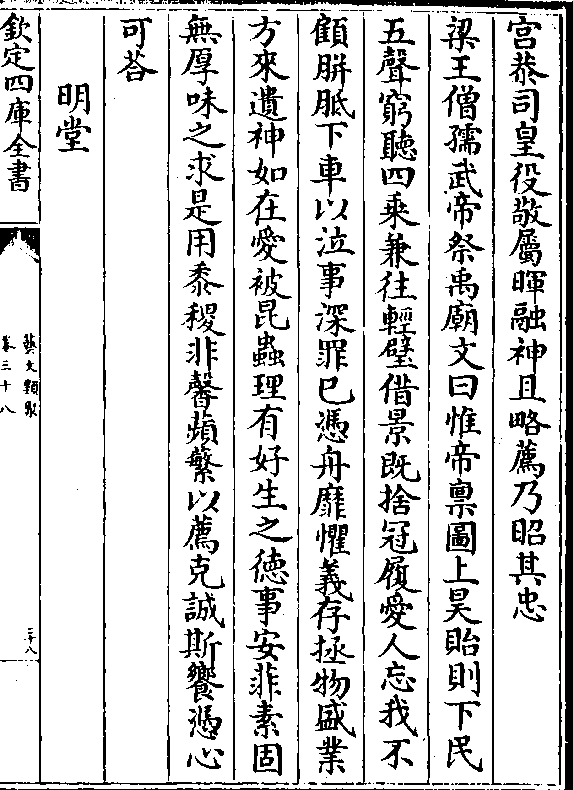 宫恭司皇役敬屬暉融神且略薦乃昭其忠
梁王僧孺武帝祭禹廟文曰惟帝禀圖上昊貽則下民
五聲窮聽四乗兼往輕璧借景既捨冠履愛人忘我不
顧胼胝下車以泣事深罪已憑舟靡懼義存拯物盛業
方來遺神如在愛被昆蟲理有好生之徳事安菲素固
無厚味之求是用黍稷非馨蘋蘩以薦克誠斯饗憑心
可荅
明堂
欽定四庫全書
藝文類聚
卷三十八
三十八